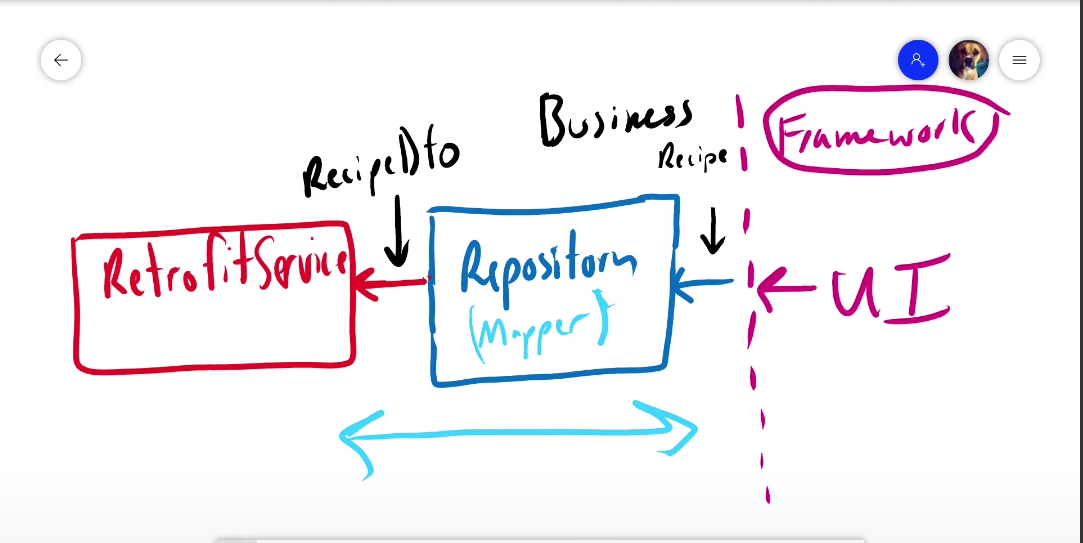 Business
Framework
RecipeDto
Recipe
RetrofitService
Repository
(Mapper)
UI